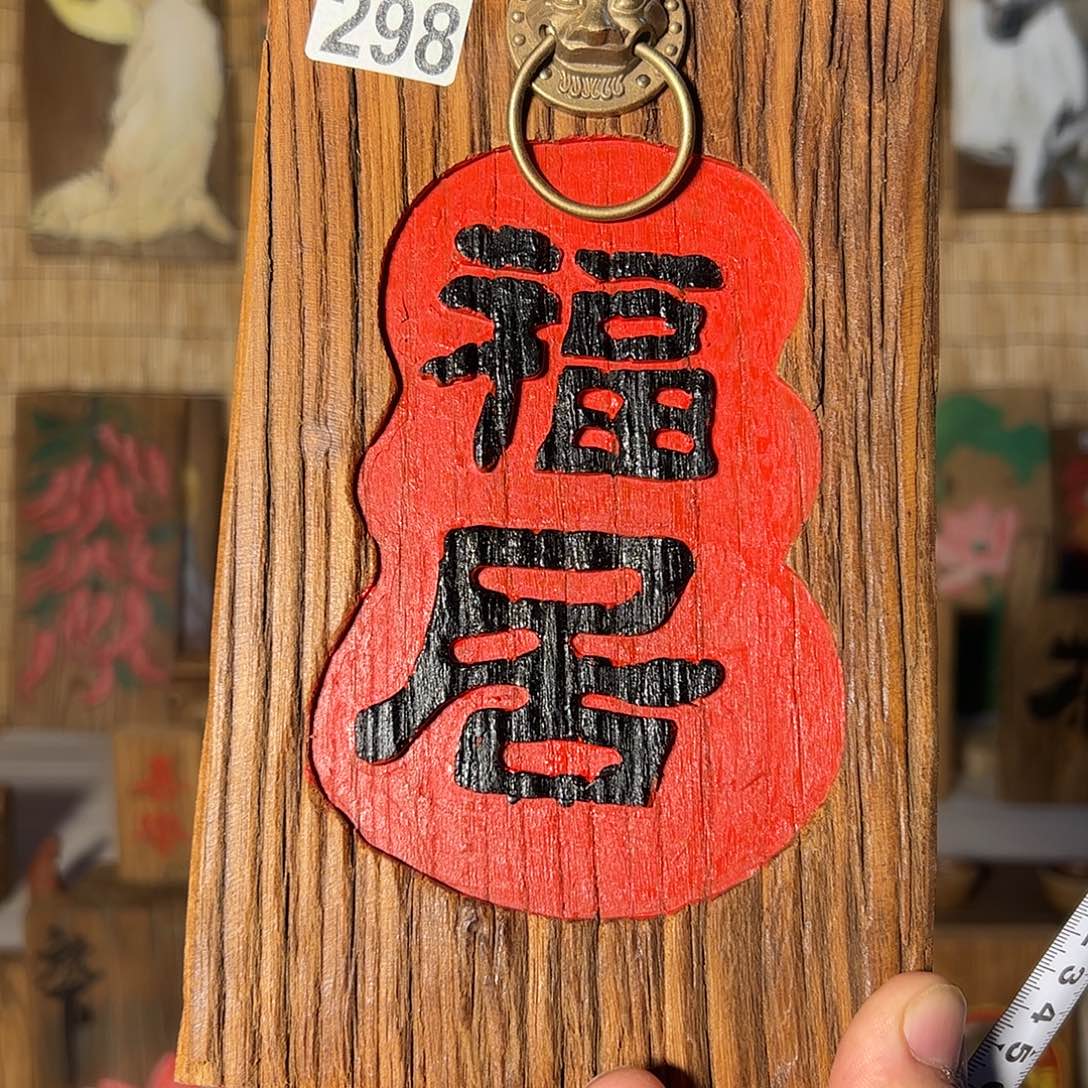 298
福
居
3
4
5